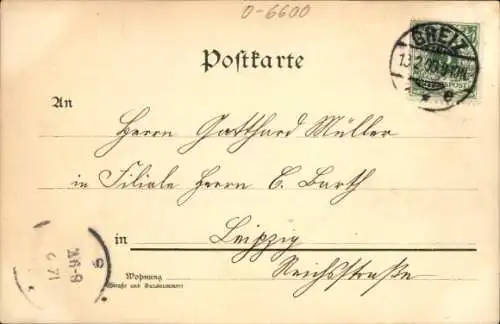 0-6600
Postkarte
GREIZ
13.2.00
An
Herrn Gotthard Müller
in Filiale Herrn C. Barth
in Leipzig
Wohnung
(Straße und Hausnummer)
Reichsstraße